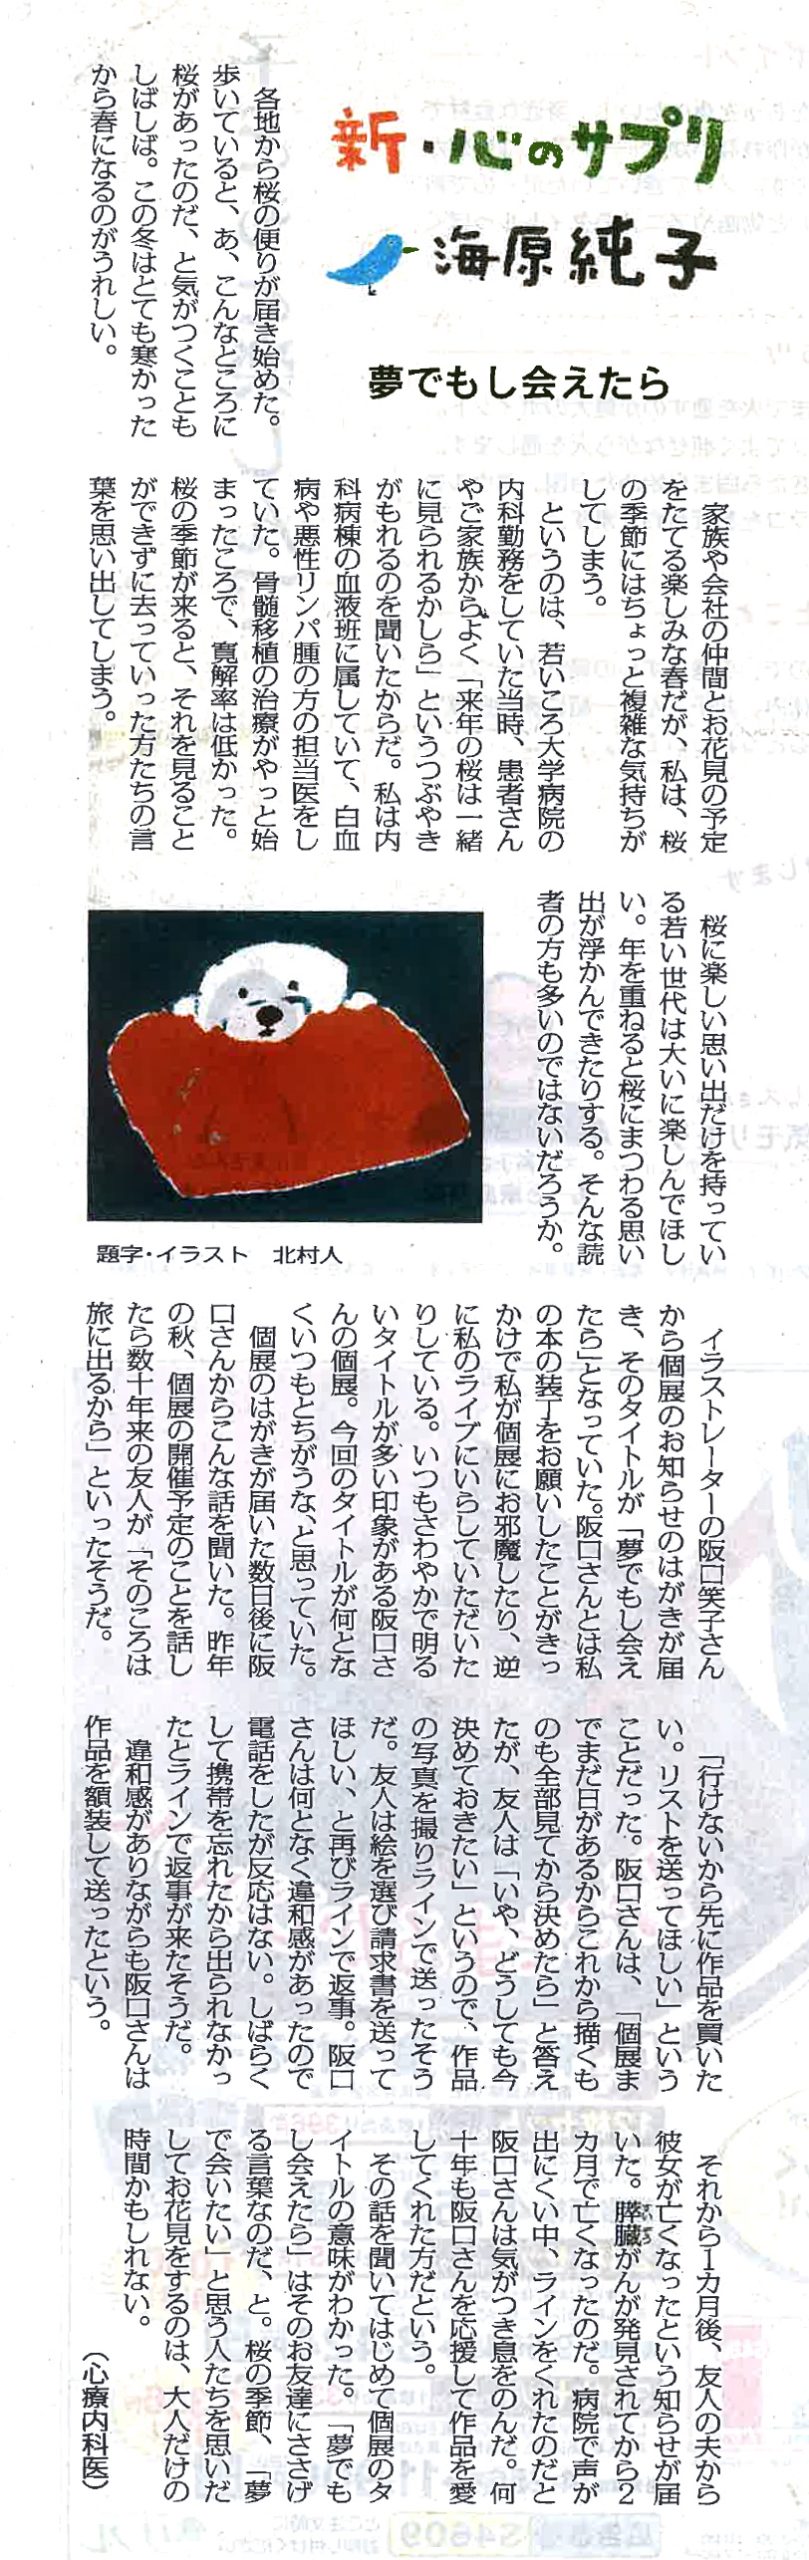 新・心のサプリ
海原純子
夢でもし会えたら
各地から桜の便りが届き始めた。
歩いていると、あ、こんなところに
桜があったのだ、と気がつくことも
しばしば。この冬はとても寒かった
から春になるのがうれしい。
家族や会社の仲間とお花見の予定
をたてる楽しみな春だが、私は、桜
の季節にはちょっと複雑な気持ちが
してしまう。
というのは、若いころ大学病院の
内科勤務をしていた当時、患者さん
やご家族からよく「来年の桜は一緒
に見られるかしら」というつぶやき
がもれるのを聞いたからだ。私は内
科病棟の血液班に属していて、白血
病や悪性リンパ腫の方の担当医をし
ていた。骨髄移植の治療がやっと始
まったころで、寛解率は低かった。
桜の季節が来ると、それを見ること
ができずに去っていった方たちの言
葉を思い出してしまう。
桜に楽しい思い出だけを持ってい
る若い世代は大いに楽しんでほし
い。年を重ねると桜にまつわる思い
出が浮かんできたりする。そんな読
者の方も多いのではないだろうか。
題字・イラスト 北村人
イラストレーターの阪口笑子さん
から個展のお知らせのはがきが届
き、そのタイトルが「夢でもし会え
たら」となっていた。阪口さんとは私
の本の装丁をお願いしたことがきっ
かけで私が個展にお邪魔したり、逆
に私のライブにいらしていただいた
りしている。いつもさわやかで明る
いタイトルが多い印象がある阪口さ
んの個展。今回のタイトルが何とな
くいつもとちがうな、と思っていた。
個展のはがきが届いた数日後に阪
口さんからこんな話を聞いた。昨年
の秋、個展の開催予定のことを話し
たら数十年来の友人が「そのころは
旅に出るから」といったそうだ。
「行けないから先に作品を買いた
い。リストを送ってほしい」という
ことだった。阪口さんは、「個展ま
でまだ日があるからこれから描くも
のも全部見てから決めたら」と答え
たが、友人は「いや、どうしても今
決めておきたい」というので、作品
の写真を撮りラインで送ったそう
だ。友人は絵を選び請求書を送って
ほしい、と再びラインで返事。阪口
さんは何となく違和感があったので
電話をしたが反応はない。しばらく
して携帯を忘れたから出られなかっ
たとラインで返事が来たそうだ。
違和感がありながらも阪口さんは
作品を額装して送ったという。
それから1カ月後、友人の夫から
彼女が亡くなったという知らせが届
いた。膵臓がんが発見されてから2
カ月で亡くなったのだ。病院で声が
出にくい中、ラインをくれたのだと
阪口さんは気がつき息をのんだ。何
十年も阪口さんを応援して作品を愛
してくれた方だという。
その話を聞いてはじめて個展のタ
イトルの意味がわかった。「夢でも
し会えたら」はそのお友達にささげ
る言葉なのだ、と。桜の季節、「夢
で会いたい」と思う人たちを思いだ
してお花見をするのは、大人だけの
時間かもしれない。
(心療内科医)